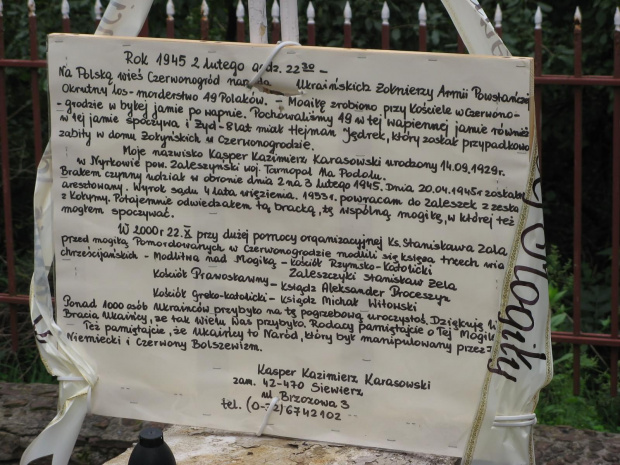 Rok 1945 2 lutego godz. 22³⁰ –
Na Polską wieś Czerwonogród Ukraińskich Żołnierzy Armii Powstańczej
Okrutny los - morderstwo 49 Polaków. – Mogiłę zrobiono przy Kościele w Czerwono-
-grodzie w byłej jamie po wapnie. Pochowaliśmy 49 w tej wapiennej jamie również
w tej jamie spoczywa i Żyd - 8 lat miał Hejman Jędrek, który został przypadkowo
zabity w domu Żołyńskich w Czerwonogrodzie.
Moje nazwisko Kasper Kazimierz Karasowski urodzony 14.09.1929r.
w Nyrkowie pow. Zaleszczyński woj. Tarnopol Na Podolu.
Brałem czynny udział w obronie dnia 2 na 3 lutego 1945. Dnia 20.04.1945r zostałem
aresztowany. Wyrok sądu 4 lata więzienia. 1953r. powracam do Zaleszek z zesłania
z Kołymy. Potajemnie odwiedzałem tą bracką, tę wspólną mogiłę, w której też
mogłem spoczywać.
W 2000r 22.X przy dużej pomocy organizacyjnej Ks. Stanisława Zela
przed mogiłą Pomordowanych w Czerwonogrodzie modlili się księża trzech wia
chrześcijańskich - Modlitwa nad Mogiłą - kościół Rzymsko-Katolicki
Zaleszczyki Stanisław Zela
Kościół Prawosławny – ksiądz Aleksander Proceszyn
Kościół Greko-katolicki – ksiądz Michał Witowski
Ponad 1000 osób Ukraińców przybyło na tę pogrzebową uroczystoś. Dziękuję
Bracia Ukaińcy, że tak wielu Was przybyło. Rodacy pamiętajcie o Tej Mogile
Też pamiętajcie, że Ukaińcy to Naród, który był manipulowany przez
Niemiecki i Czerwony Bolszewizm.
Kasper Kazimierz Karasowski
zam. 42-470 Siewierz
ul Brzozowa 3
tel. 6742102
Mogiły